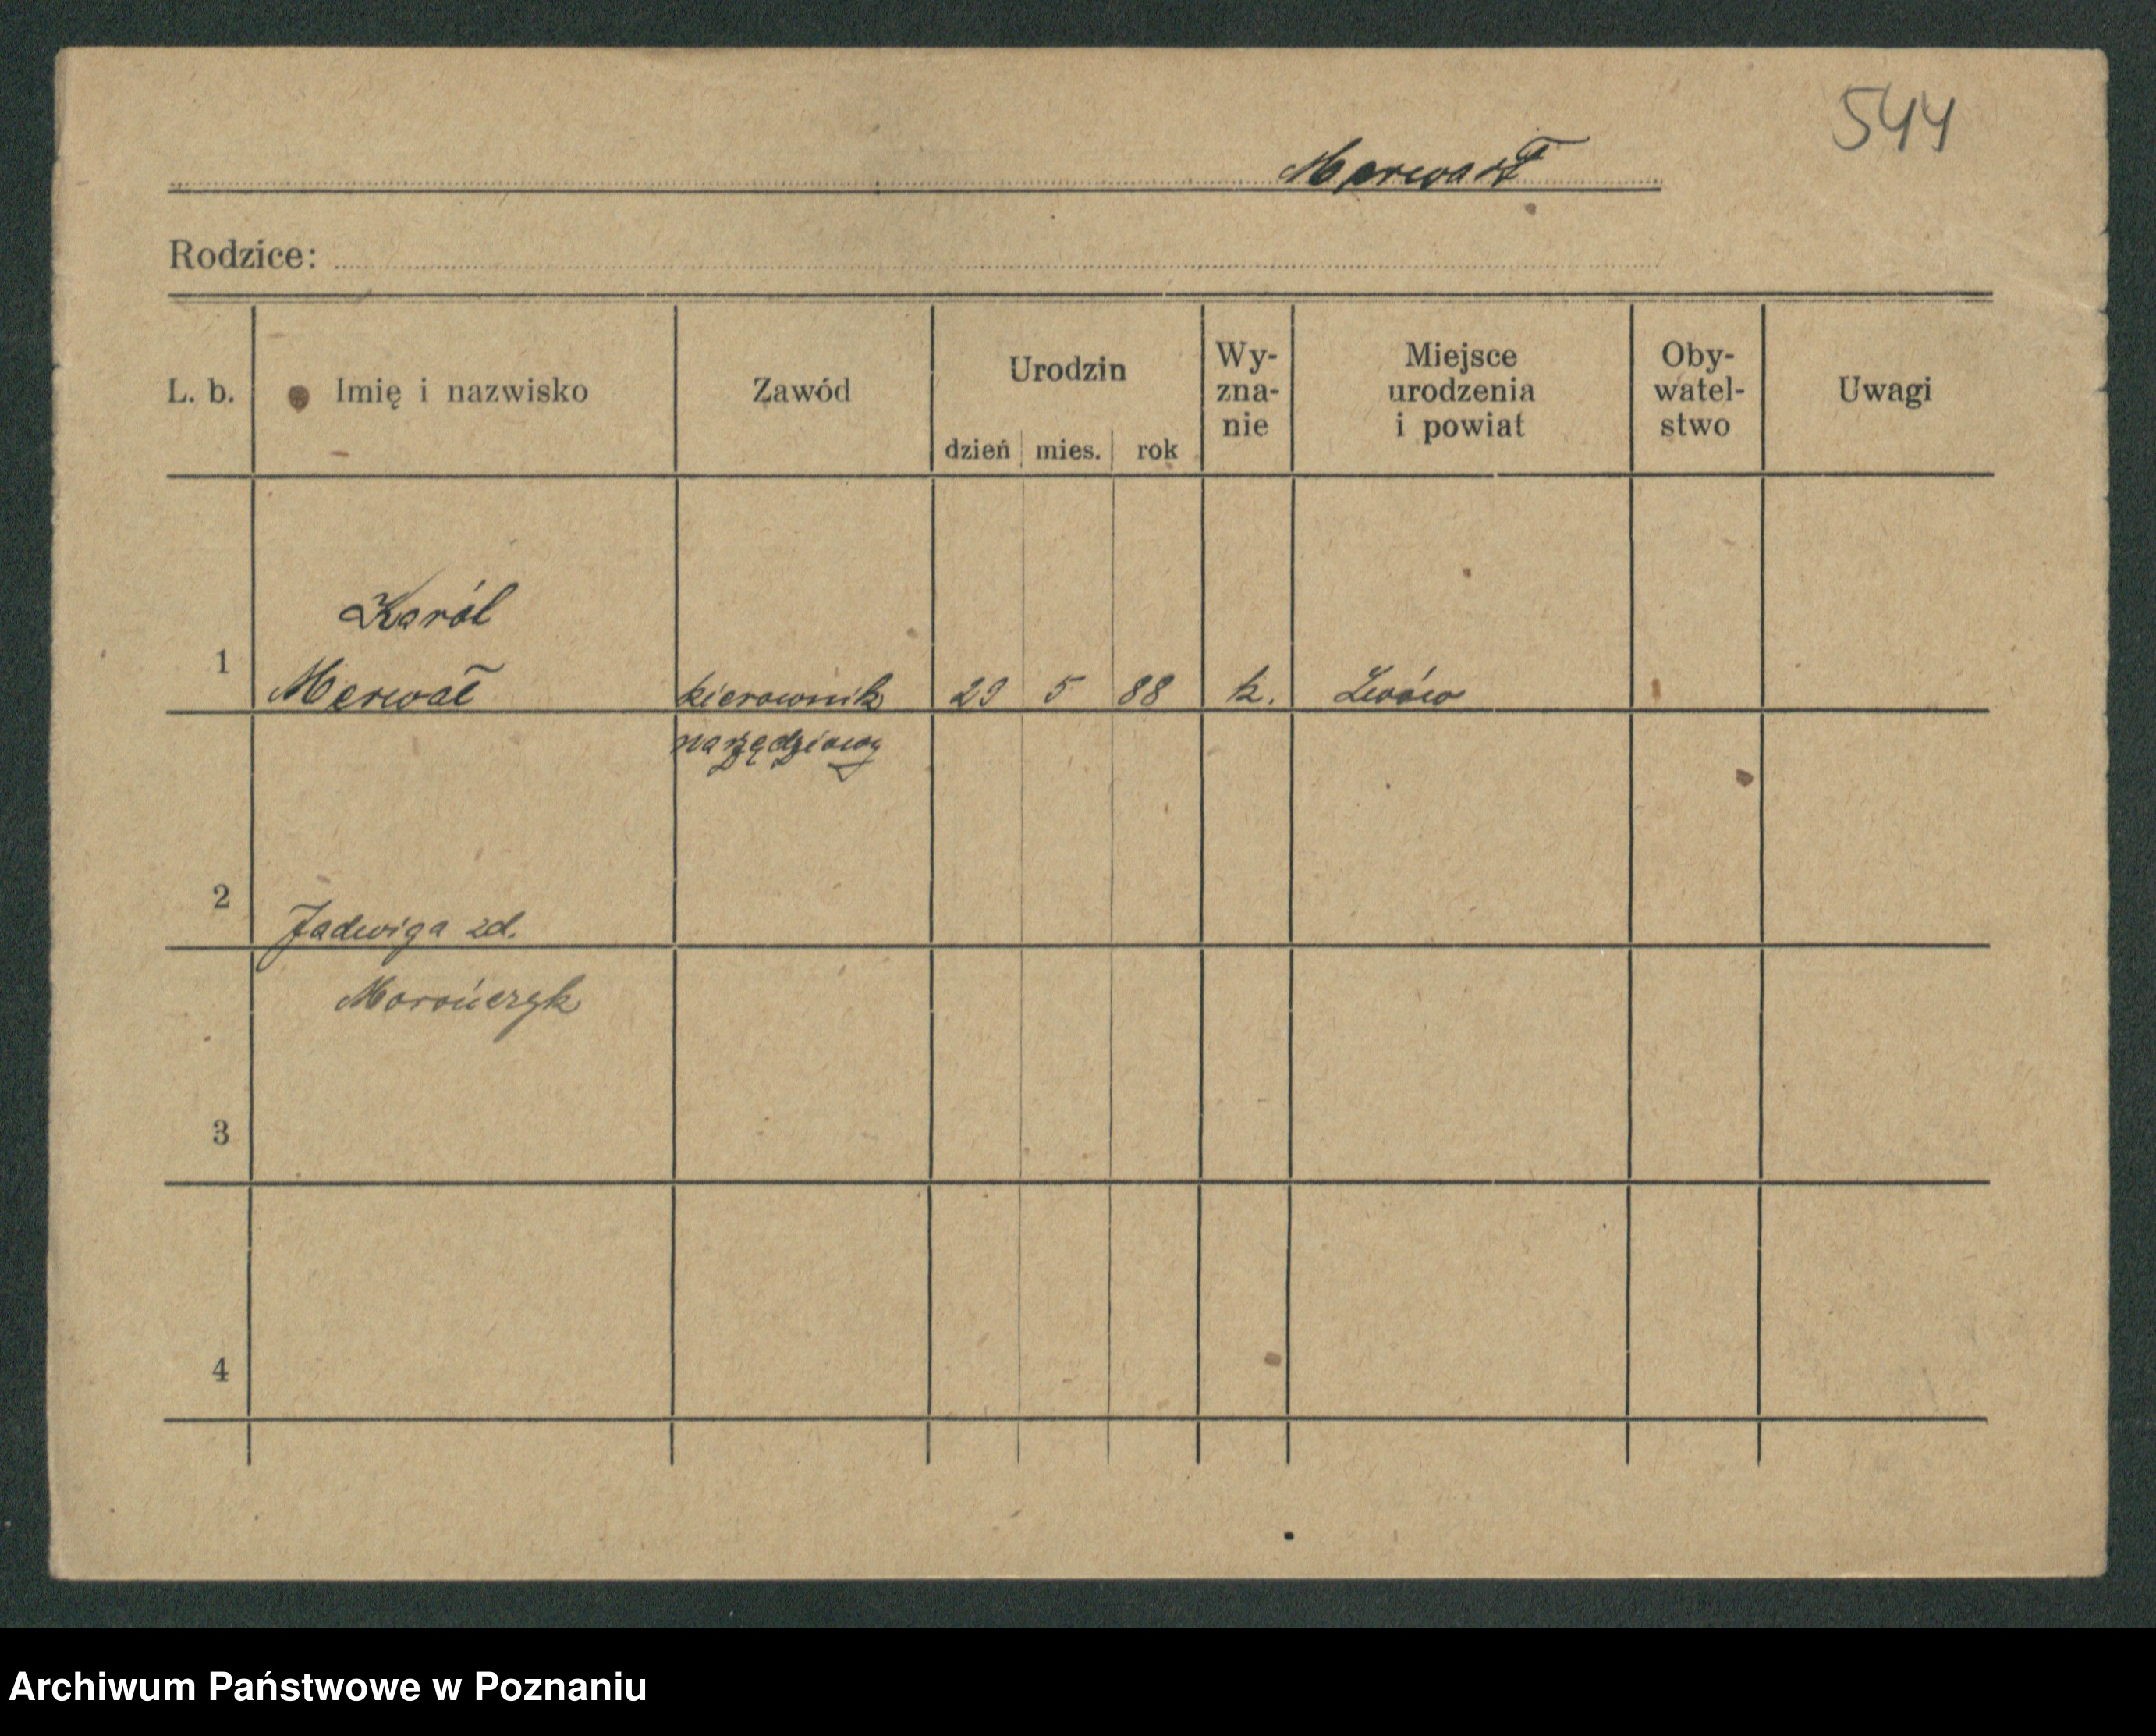 544
Merwart
Rodzice:
L. b.
Imię i nazwisko
Zawód
Urodzin
dzień mies. rok
Wy-
zna-
nie
Miejsce
urodzenia
i powiat
Oby-
watel-
stwo
Uwagi
Karól
1 Merwał kierownik 29 5 88 k. Lwów
narzędziowy
2 Jadwiga zd.
Morończyk
3
4
Archiwum Państwowe w Poznaniu